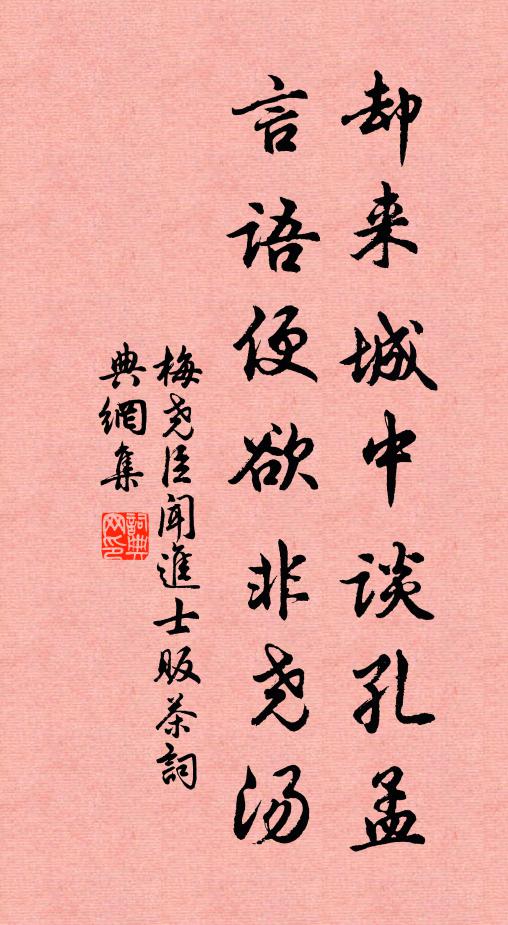 却来城中谈孔孟
言语便欲非尧汤
梅尧臣闻進士贩茶詞
典網集
詞典
网印